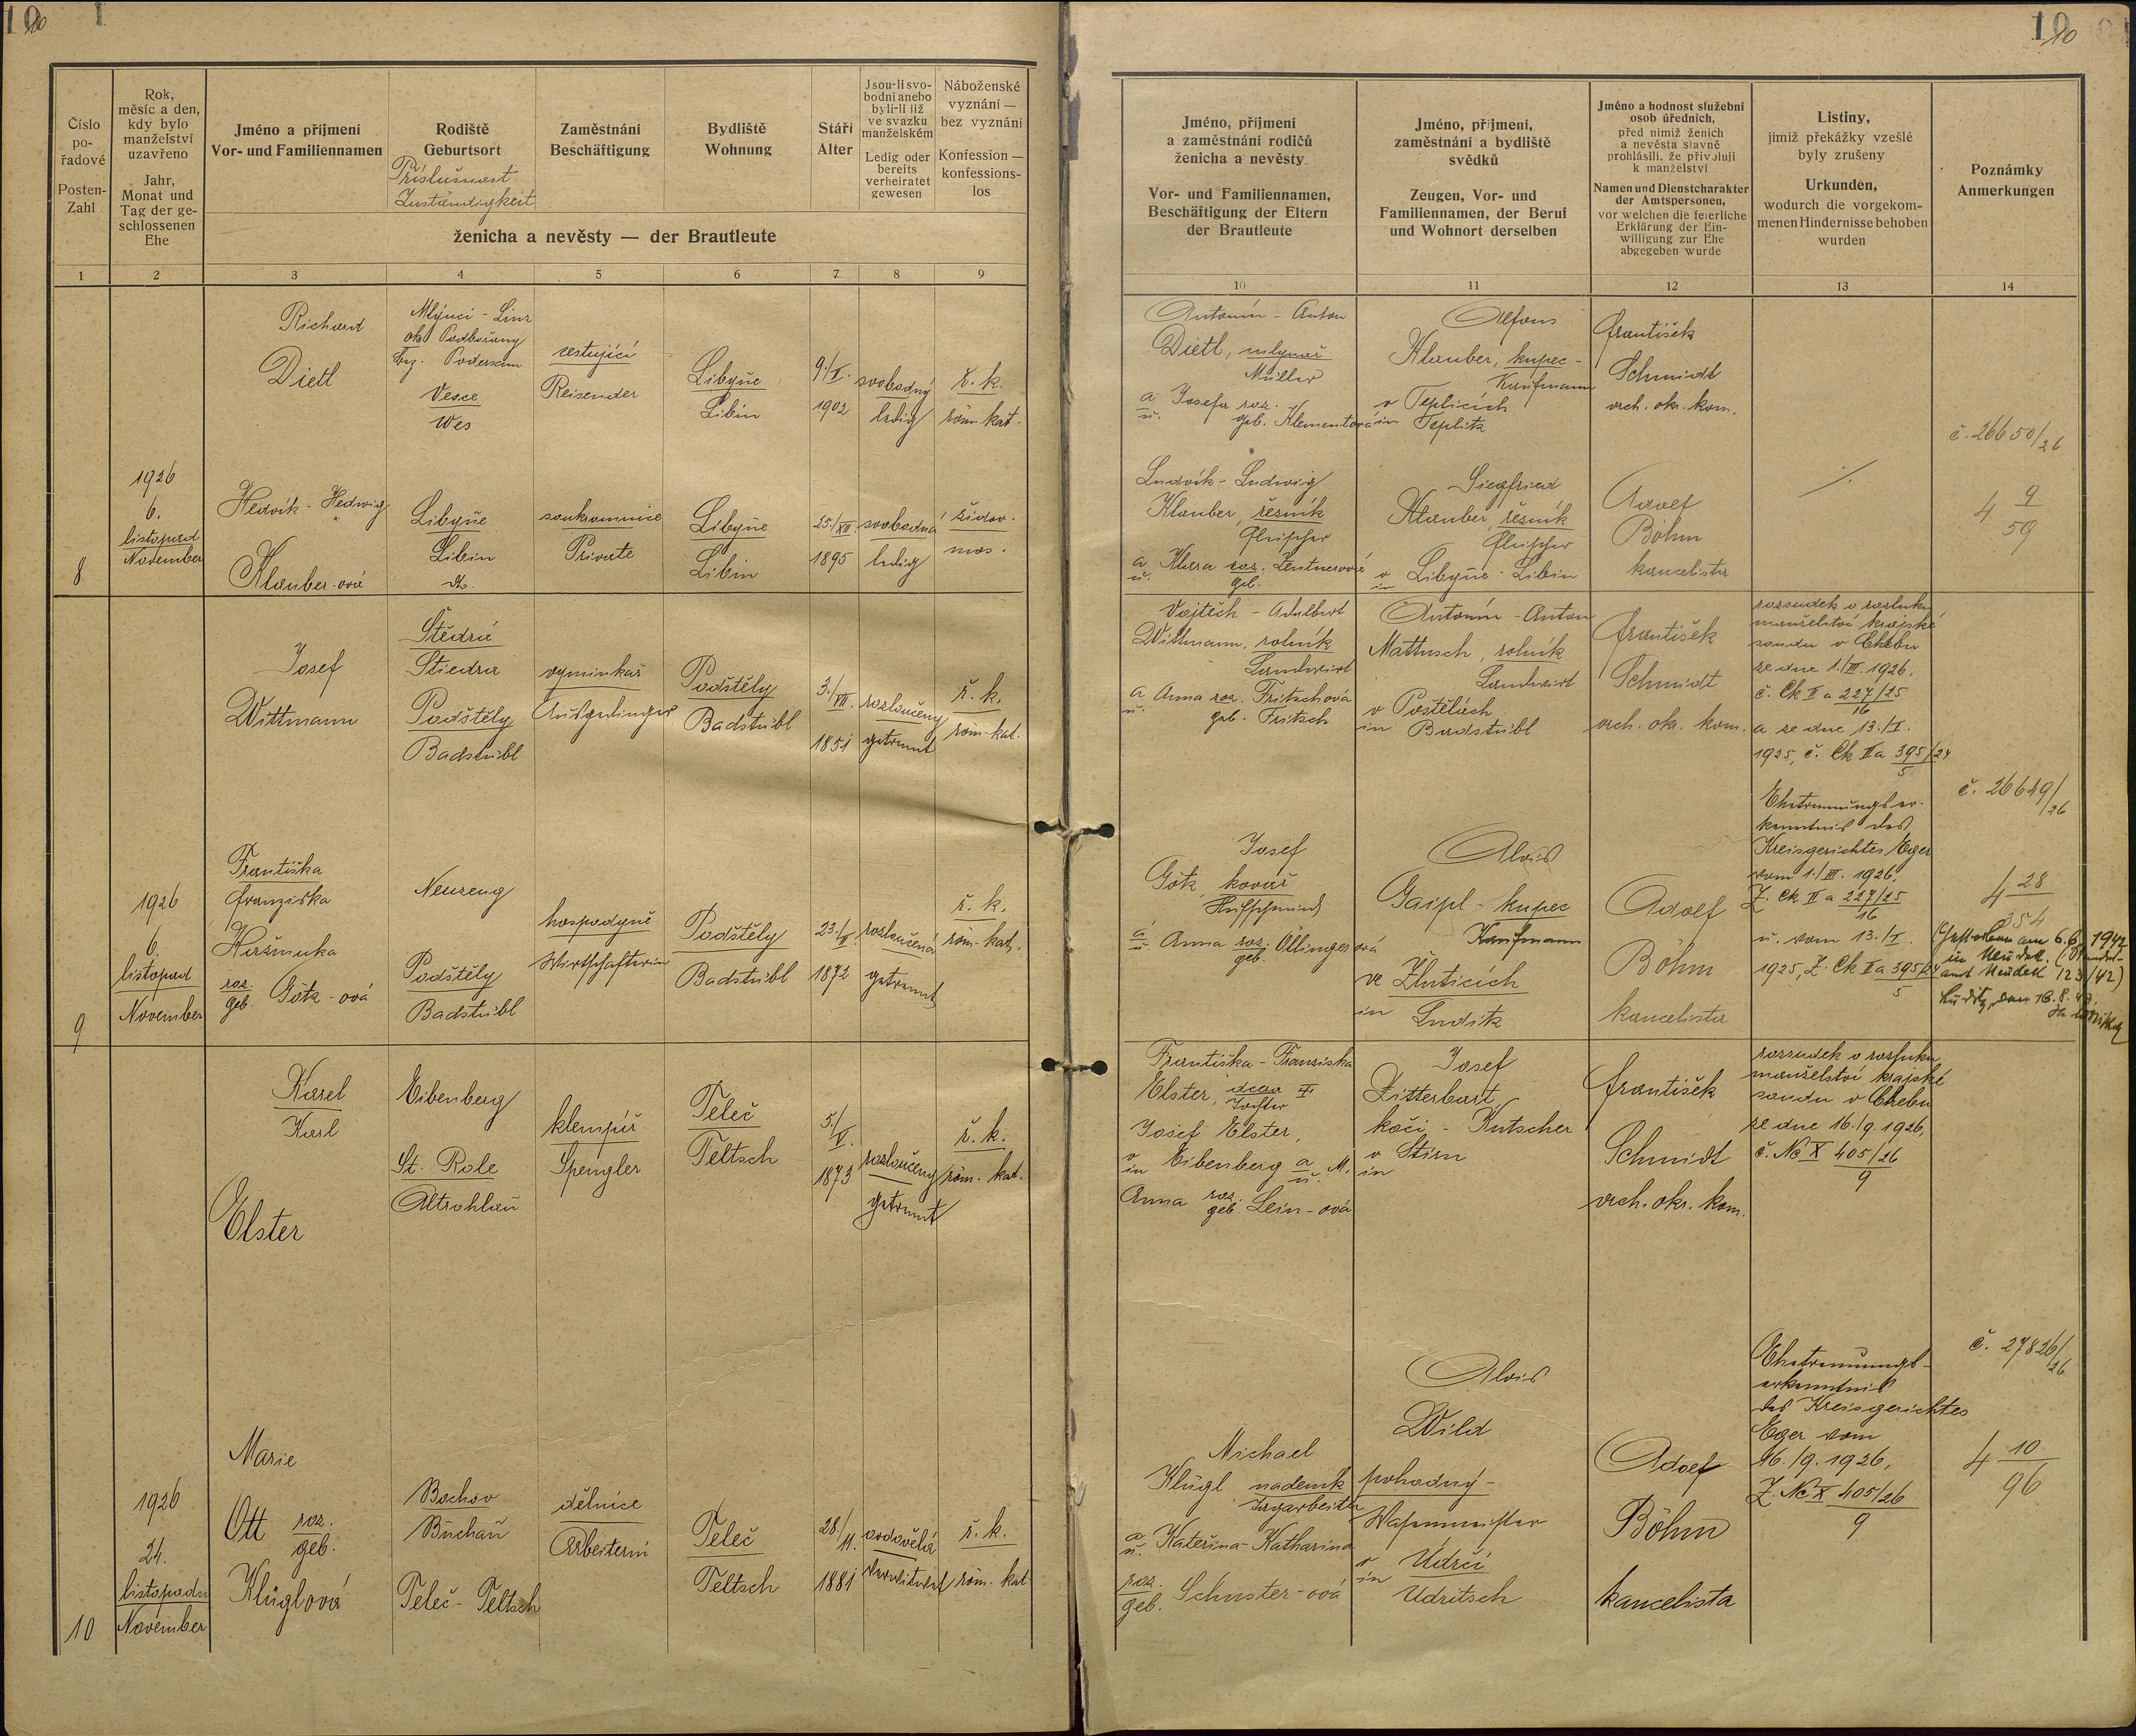 10
Číslo po-řadové
Posten-Zahl
Rok, měsíc a den, kdy bylo manželství uzavřeno
Jahr, Monat und Tag der ge-schlossenen Ehe
Jméno a příjmení
Vor- und Familiennamen
Rodiště
Geburtsort
Příslušnost
Zuständigkeit
Zaměstnání
Beschäftigung
Bydliště
Wohnung
Stáří
Alter
Jsou-li svo-bodni anebo byli-li již ve svazku manželském
Ledig oder bereits verheiratet gewesen
Náboženské vyznání — bez vyznání
Konfession — konfessions-los
ženicha a nevěsty — der Brautleute
1 2 3 4 5 6 7 8 9
Richard
Dietl
Mlýnci - Linz
okr. Podbořany
Bez. Podersam
Vesce
Wes
cestující
Reisender
Libyně
Libin
9./V.
1902
svobodný
ledig
ř. k.
röm. kat.
8
1926
6.
listopad
November
Hedvik - Hedwig
Klauber-ová
Libyně
Libin
dto.
soukromnice
Private
Libyně
Libin
25./XII
1895
svobodná
ledig
židov.
mos.
Josef
Wittmann
Štědrá
Stiedra
Podštěly
Badstübl
vyminkář
Ausgedinger
Podštěly
Badstübl
3./VII.
1851
rozloučený
getrennt
ř. k.
röm-kat.
9
1926
6.
listopad
November
Františka
Franziska
roz.
geb. Götz-ová
Neuzeng
Podštěly
Badstübl
hospodyně
Wirtschafterin
Podštěly
Badstübl
23./
1872
rozloučená
getrennt
ř. k.
röm-kath.
Karel
Karl
Elster
Eibenberg
St. Role
Altrohlau
klempíř
Spengler
Teleč
Teltsch
5./V.
1873
rozloučený
getrennt
ř. k.
röm. kat.
10
1926
24.
listopadu
November
Marie
Ott roz.
geb.
Klüglová
Bochov
Buchau
Teleč - Teltsch
dělnice
Arbeiterin
Teleč
Teltsch
28./11.
1881
ovdovělá
verwitwet
ř. k.
röm. kat
10
Jméno, příjmení a zaměstnání rodičů ženicha a nevěsty
Vor- und Familiennamen, Beschäftigung der Eltern der Brautleute
Jméno, příjmení, zaměstnání a bydliště svědků
Zeugen, Vor- und Familiennamen, der Beruf und Wohnort derselben
Jméno a hodnost služební osob úředních,
před nimiž ženich a nevěsta slavně prohlásili, že přivolují k manželství
Namen und Dienstcharakter der Amtspersonen,
vor welchen die feierliche Erklärung der Ein-willigung zur Ehe abgegeben wurde
Listiny,
jimiž překážky vzešlé byly zrušeny
Urkunden,
wodurch die vorgekom-menen Hindernisse behoben wurden
Poznámky
Anmerkungen
10 11 12 13 14
Antonín - Anton
Dietl, mlynář
Müller
a Josefa roz.
u. geb. Klementová
Alfons
Klauber, kupec -
Kaufmann
v Teplicích
in Teplitz
František
Schmidt
vrch. okr. kom.
č. 26650/26
Ludvík - Ludwig
Klauber, řezník
Fleischer
a Klara roz. Lentnerová
u. geb.
Siegfried
Klauber, řezník
Fleischer
v Libyně - Libin
in
Adolf
Böhm
kancelista
4 9/59
Vojtěch - Adalbert
Wittmann, rolník
Landwirt
a Anna roz. Fritschová
u. geb. Fritsch
Antonín - Anton
Mattusch, rolník
Landwirt
v Postělích
in Badstübl
František
Schmidt
vrch. okr. kom.
rozsudek o rozluku
manželství krajské
soudu v Chebu
ze dne 1./III. 1926.
č. Ck II a 227/25
16
a ze dne 13./I.
1925, č. Ck II a 395/24
5
č. 26649/26
Josef
Götz, kovář
Hufschmied
a Anna roz. Öllinger ová
u. geb.
Alois
Gaipl - kupec
Kaufmann
ve Žluticích
in Luditz
Adolf
Böhm
kancelista
Ehetrennungser-
kenntnis des
Kreisgerichtes Eger
vom 1./III. 1926.
Z. Ck II a 227/25
16
u. vom 13./I.
1925, Z. Ck II a 395/24
5
4 28/354
Gestorben am 6.6. 1942
in Neudek. (Standes-
amt Neudek 123/42)
Františka - Franziska
Elster, dcera
Tochter
Josef Elster,
v
in Eibenberg a M.
u.
Anna roz.
geb. Lein-ová
Josef
Zitterbart,
kočí - Kutscher
v Stirn
in
František
Schmidt
vrch. okr. kom.
rozsudek o rozluku
manželství krajské
soudu v Chebu
ze dne 16./9. 1926,
č. Nc X 405/26
9
č. 27826/26
Michael
Klügl nádeník
Tagarbeiter
a Kateřina - Katharina
u.
roz.
geb. Schuster-ová
Alois
Wild
pohodný -
Wasenmeister
v Údrči
in Udritsch
Adolf
Böhm
kancelista
Ehetrennungs-
erkenntnis
des Kreisgerichtes
Eger vom
16./9. 1926,
Z. Nc X 405/26
9
4 10/96